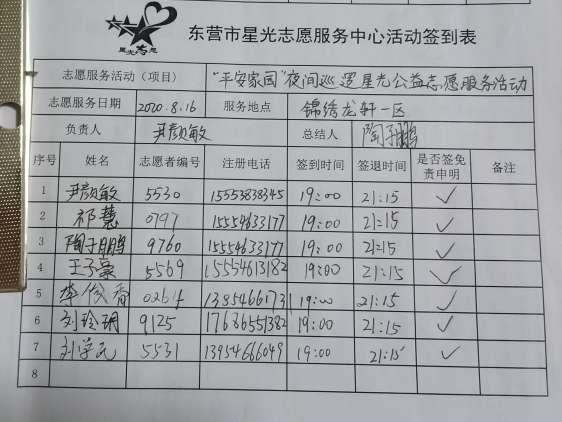 星光志愿
东营市星光志愿服务中心活动签到表
志愿服务活动（项目） "平安家园"夜间巡逻星光公益志愿服务活动
志愿服务日期 2020.8.16 服务地点 锦绣龙轩一区
负责人 尹颜敏 总结人 陶于鹏
序号 姓名 志愿者编号 注册电话 签到时间 签退时间 是否签免责申明 备注
1 尹颜敏 5530 15553838345 19:00 21:15 ✓
2 祁慧 0797 15554633177 19:00 21:15 ✓
3 陶于鹏 9760 15554633177 19:00 21:15 ✓
4 王子豪 5569 15554613182 19:00 21:15 ✓
5 李俊香 0264 19:00 21:15 ✓
6 刘玲玥 9125 17686551382 19:00 21:15 ✓
7 刘学民 5531 13954666049 19:00 21:15 ✓
8